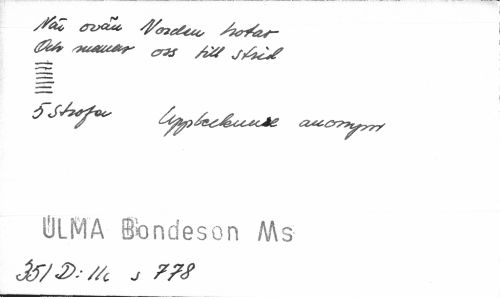 När ovän Norden hotar
Och manar oss till strid
5 Strofer Upptecknare anonym
ULMA Bondeson Ms
351 D: 11c s 778